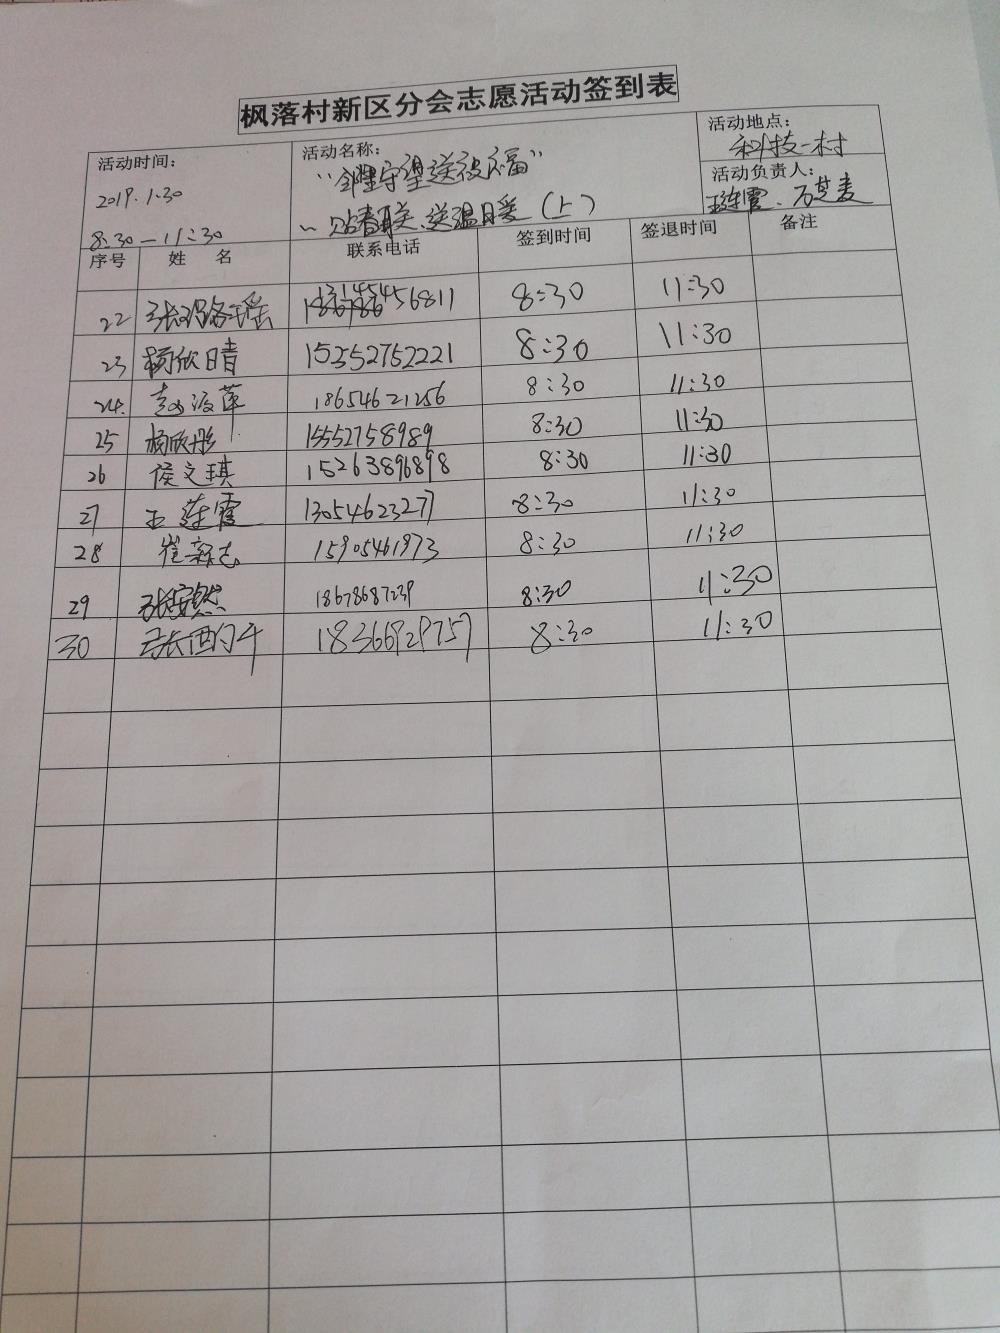 枫落村新区分会志愿活动签到表
活动时间：
2019.1.30
8:30—11:30
活动名称：
“邻里守望送祝福”
～贴春联、送温暖（上）
活动地点：
科技一村
活动负责人：
王莲霞、万芝麦
序号 姓 名 联系电话 签到时间 签退时间 备注
22 张 瑶 8:30 11:30
23 杨欣晴 15252752221 8:30 11:30
24. 萍 18654621256 8:30 11:30
25 杨欣彤 15552758989 8:30 11:30
26 侯文琪 15263896898 8:30 11:30
27 王莲霞 13054623277 8:30 11:30
28 崔新志 15905461973 8:30 11:30
29 张安然 18678687239 8:30 11:30
30 张 18366929757 8:30 11:30